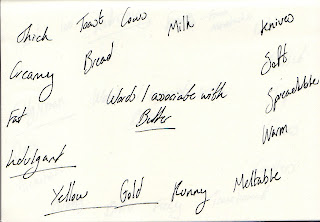 Thick Toast Cows Milk Knives
Creamy Bread Soft
Words I associate with Spreadable
Fat Butter
Warm
Indulgant
Yellow Gold Runny Meltable